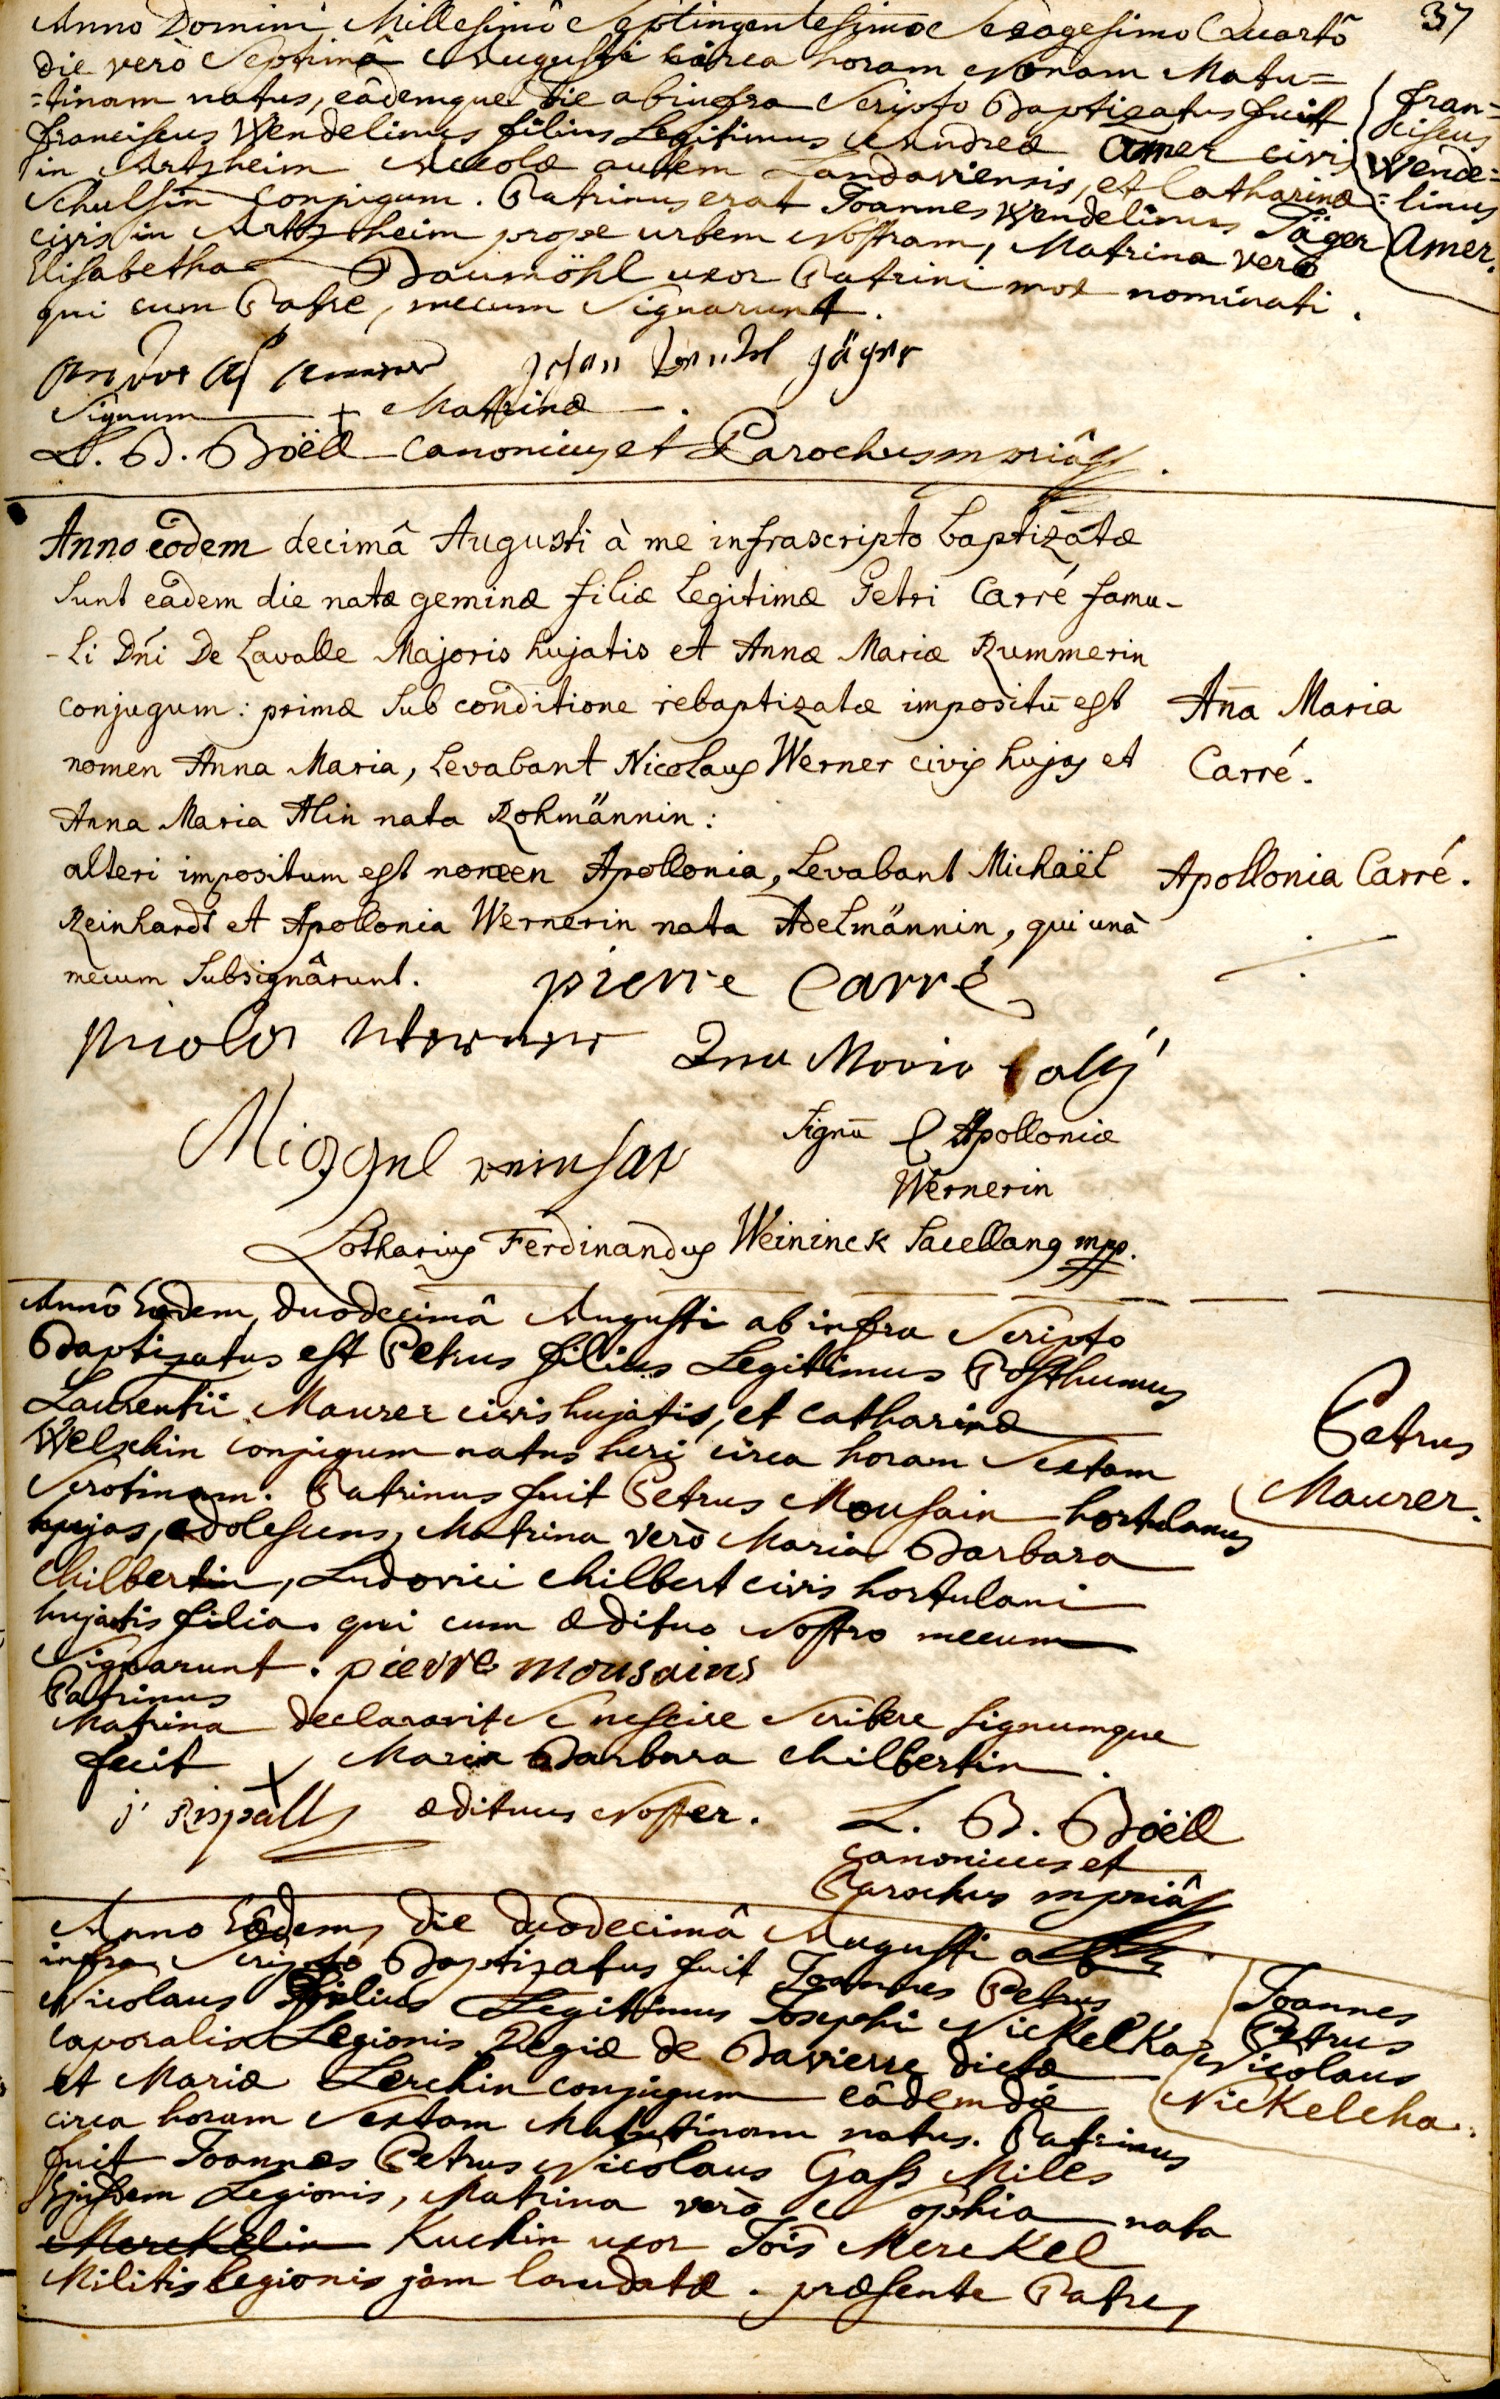 37
Anno Domini Millesimô Septingentesimo Sexagesimo Quartô
die verò Septimâ Augusti circa horam Nonam Matu=
=tinam natus, eâdemque die ab infra Scripto Baptizatus fuit
franciscus Wendelinus filius Legitimus Andreæ Amer civis
in Artzheim Accolæ autem Landaviensis, et Catharinæ
Schulsin Conjugum. Patrinus erat Joannes Wendelinus Jäger
civis in Artzheim prope urbem Nostram, Matrina verò
Elisabetha Baumöhl uxor Patrini mox nominati.
qui cum Patre, mecum Signarunt.
fran=
ciscus
Wende=
=linus
Amer.
Johan Jäger
Signum + Matrinæ.
L. B. Boëll Canonicus et Parochus mpriâ
Anno eôdem decimâ Augusti à me infrascripto baptizatæ
Sunt eâdem die natæ geminæ filiæ Legitimæ Petri Carré famu-
-Li Dni De Lavalle Majoris hujatis et Annæ Mariæ Rummerin
conjugum: primæ Sub conditione rebaptizatæ impositū est
nomen Anna Maria, Levabant Nicolaus Werner civis hujas et
Anna Maria Alin nata Rohmännin:
alteri impositum est nomen Apollonia, Levabant Michaël
Reinhardt et Apollonia Wernerin nata Adelmännin, qui unà
mecum Subsignârunt.
Aña Maria
Carré.
Apollonia Carré.
pierre Carré
Nicolas Werner
Ana Maria
Michael
Signū Apolloniæ
Wernerin
Lotharius Ferdinandus Weininck Sacellanus mpp.
Annô Eodem, duodecimâ Augusti ab infra Scripto
Baptizatus est Petrus filius Legittimus Posthumus
Laurentii Maurer civis hujatis, et Catharinæ
Welschin conjugum natus heri circa horam Sextam
Serotinam. Patrinus fuit Petrus Mousain hortulanus
hujas, adolescens, Matrina verò Maria Barbara
Chilbertin, Ludovici Chilbert civis hortulani
hujatis filia. qui cum ædituo Nostro mecum
Signarunt. pierre mousains
Patrinus
Matrina declaravit Se nescire Scribere Signumque
fecit X Maria Barbara Chilbertin.
ædituus Noster.
L. B. Boëll
Canonicus et
Parochus mpriâ
Petrus
Maurer.
Anno Eôdem, die duodecimâ Augusti ab
infra Scripto Baptizatus fuit Joannes Petrus
Nicolaus filius Legittimus Josephi NickelKa
Caporalis Legionis Regiæ de Bavierre dictæ
et Mariæ Lerchin conjugum eâdem die
circa horam Sextam Matutinam natus. Patrinus
fuit Joannes Petrus Nicolaus Gass Miles
Ejusdem Legionis, Matrina verò Sophia nata
Merckelin Kuchin uxor Jois Merckel
Militis Legionis jam laudatæ. præsente Patre,
Joannes
Petrus
Nicolaus
Nickelcha.